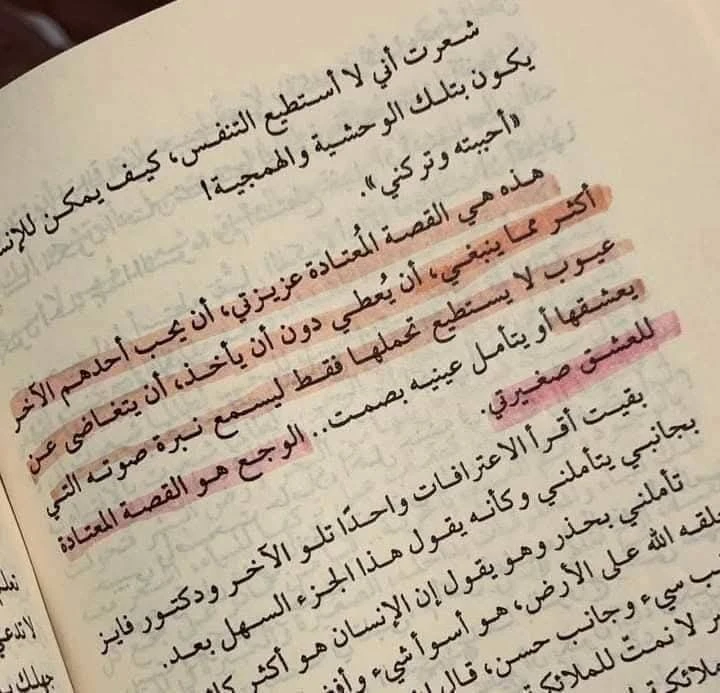 شعرت أني لا أستطيع التنفس، كيف يمكن
يكون بتلك الوحشية والهمجية!
«أحببته وتركني».
هذه هي القصة المُعتادة عزيزتي، أن يحب أحدهم الآخر
أكثر مما ينبغي، أن يُعطي دون أن يأخذ، أن يتغاضى عن
عيوب لا يستطيع تحملها فقط ليسمع نبرة صوته التي
يعشقها أو يتأمل عينيه بصمت.. الوجع هو القصة المعتادة
للعشق صغيرتي.
بقيت أقرأ الاعترافات واحدًا تلو الآخر ودكتور فايز
بجانبي يتأملني وكأنه يقول هذا الجزء السهل بعد.
تأملني بحذر وهو يقول إن الإنسان هو أكثر
الله على الأرض، هو أسوأ شيء
سيء وجانب حسن، قال
لا نمتّ